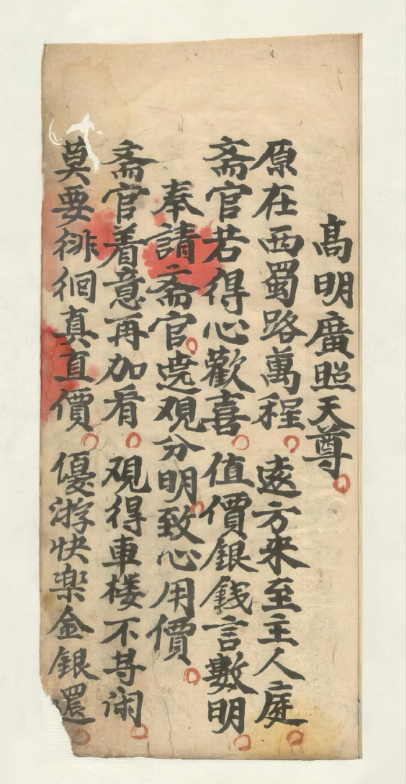 髙明廣照天尊
原在西蜀路萬程 遠方來至主人庭
斋官若得心歡喜 值價銀錢言數明
奉請斋官 观分明致心用價
斋官着意再加看 观得車楼不寻闲
莫要徘徊真直價 優游快樂金銀還